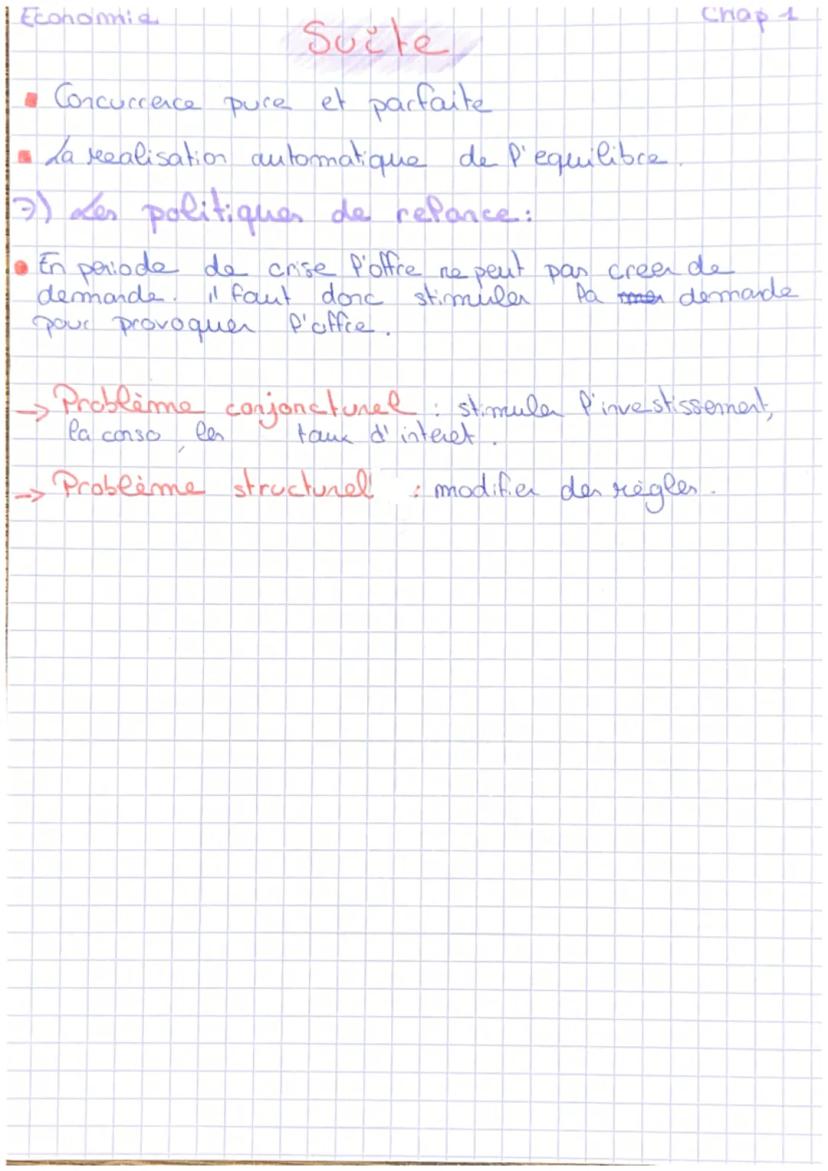 Economie
Chap 1
Suite
Concurrence pure et parfaite
La realisation automatique de l'equilibre.
7) Les politiques de relance :
En periode de crise l'offre ne peut pas creer de
demande. il faut donc stimuler la demande
pour provoquer l'offre.
-> Problème conjoncturel : stimuler l'investissement,
la conso, les taux d'interet.
-> Problème structurel : modifier des règles.